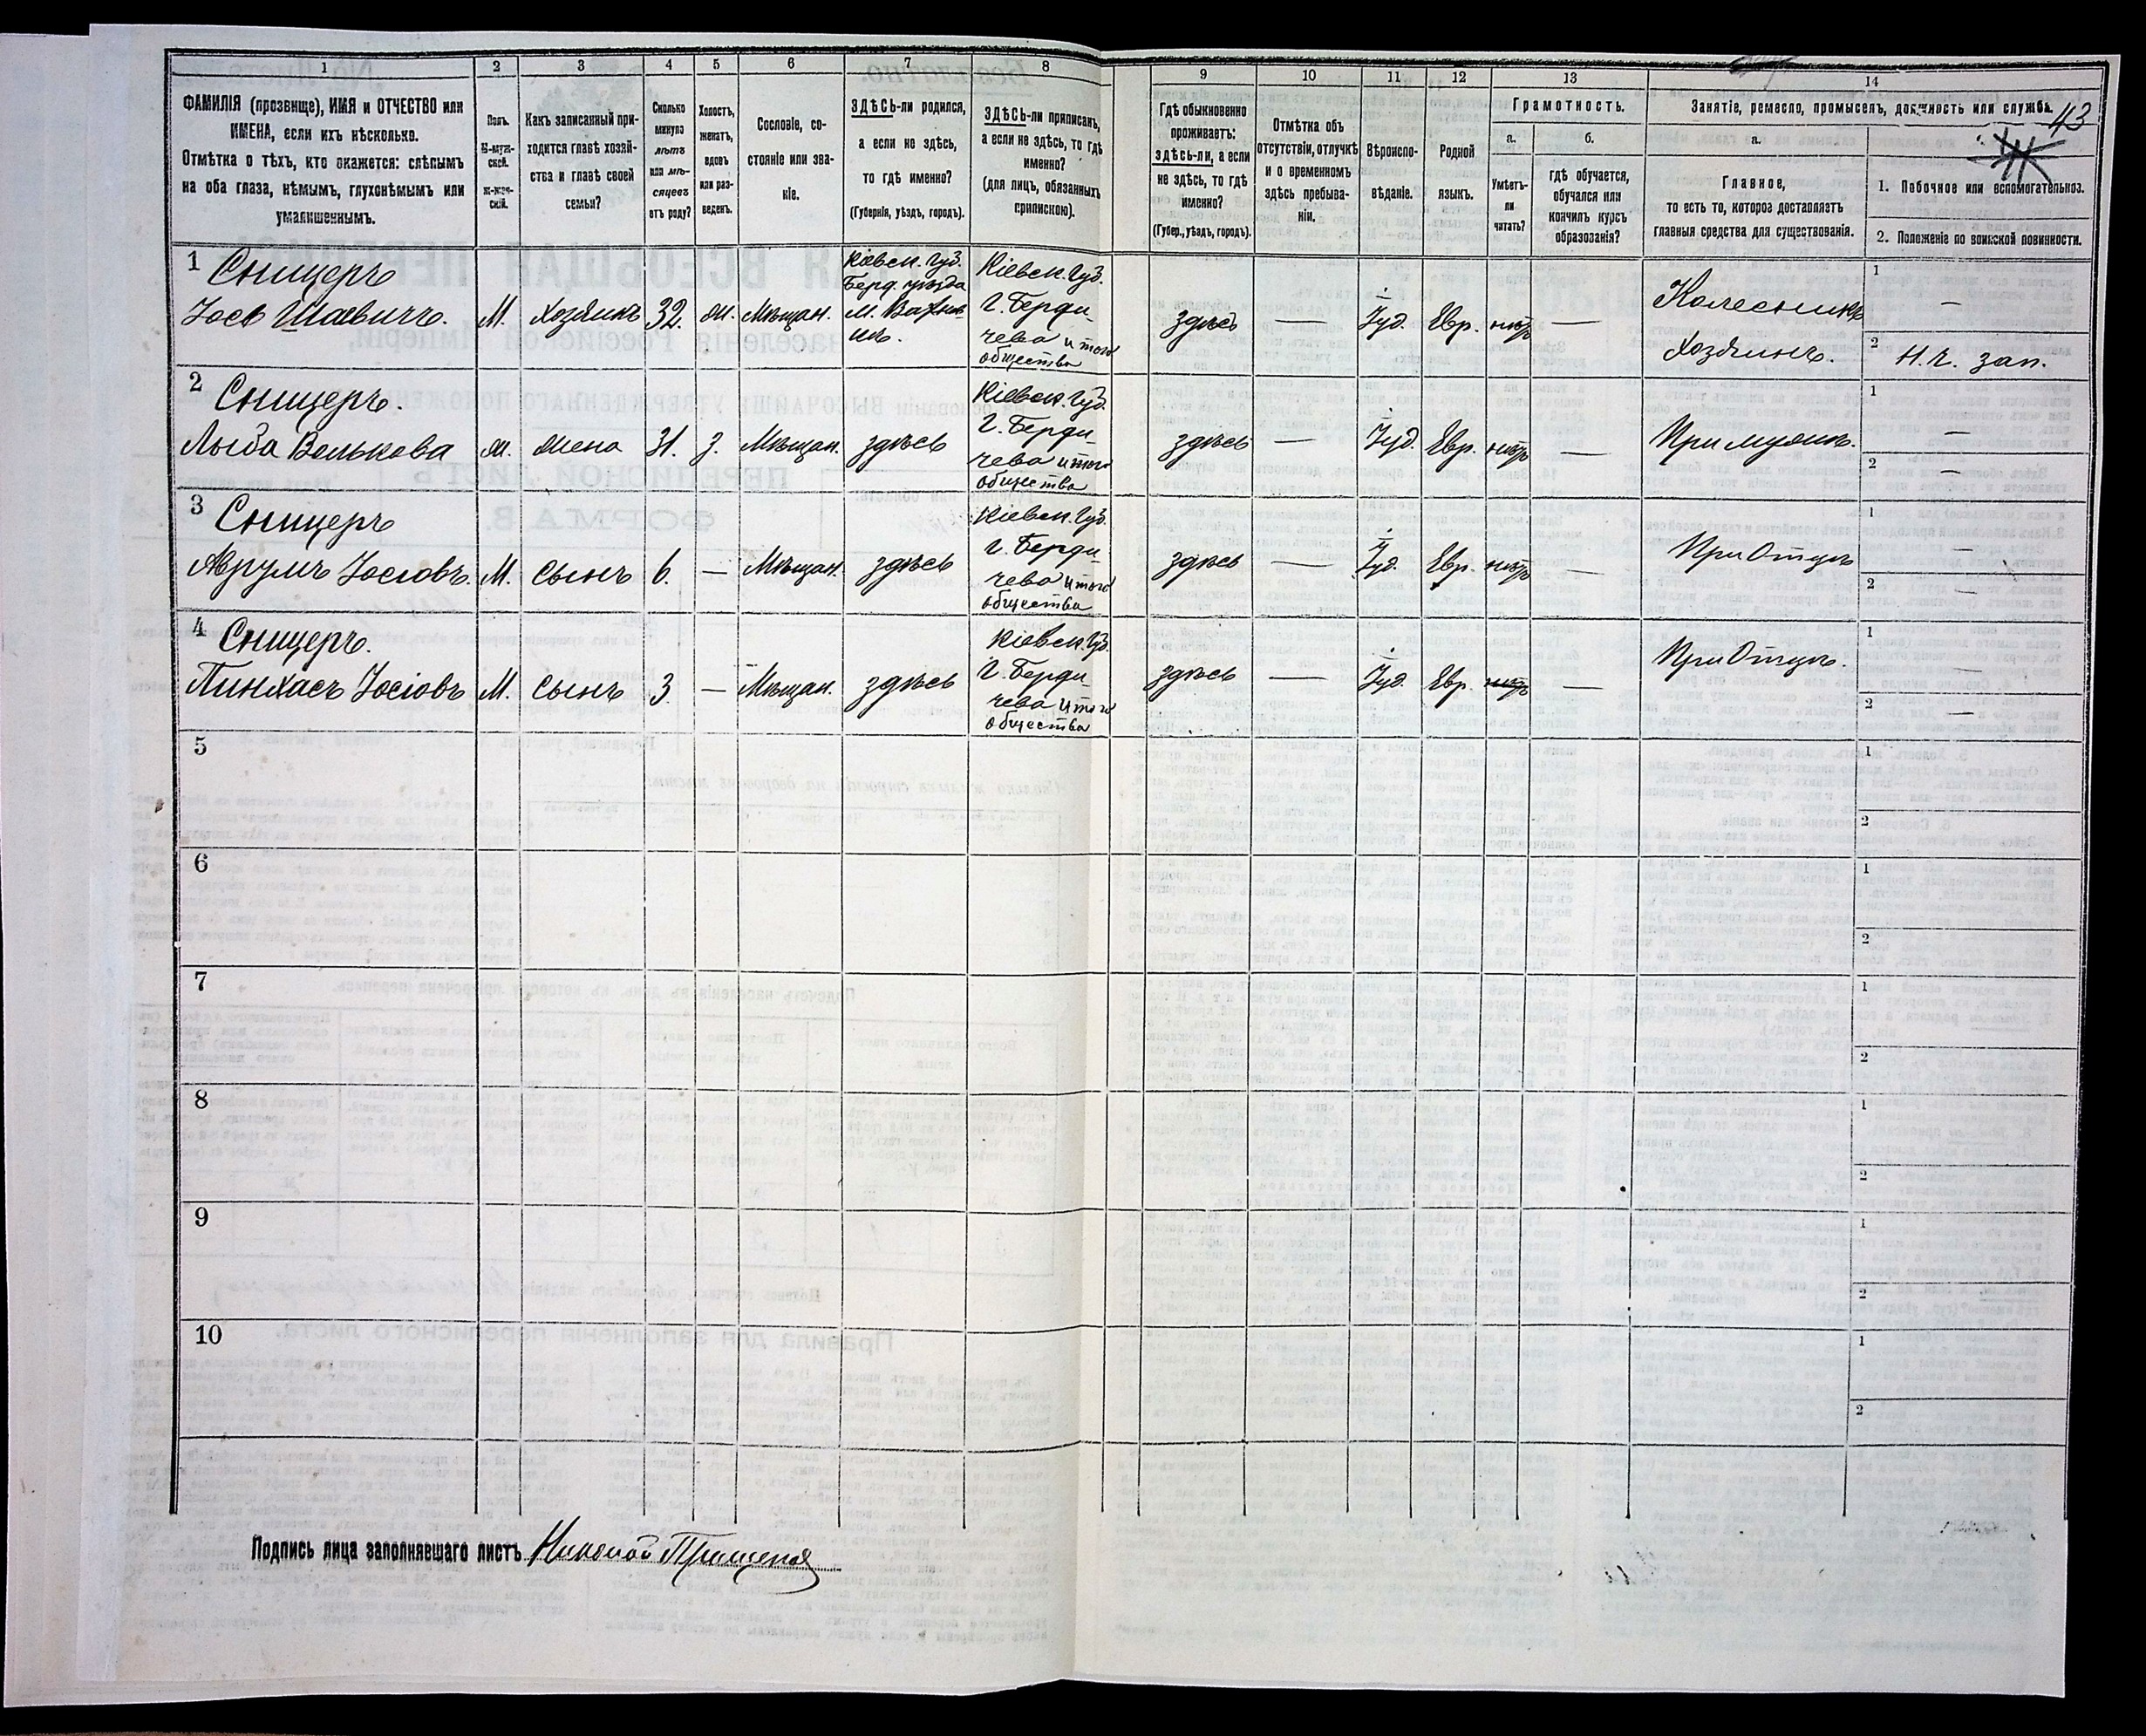 1 2 3 4 5 6 7 8 9 10 11 12 13 14
43
ФАМИЛІЯ (прозвище), ИМЯ и ОТЧЕСТВО или
ИМЕНА, если ихъ нѣсколько.
Отмѣтка о тѣхъ, кто окажется: слѣпымъ
на оба глаза, нѣмымъ, глухонѣмымъ или
умалишеннымъ.
Полъ.
М-муж-
ской.
ж-жен-
скій.
Какъ записанный при-
ходится главѣ хозяй-
ства и главѣ своей
семьи?
Сколько
минуло
лѣтъ
или мѣ-
сяцевъ
отъ роду?
Холостъ,
женатъ,
вдовъ
или раз-
веденъ.
Сословіе, со-
стояніе или зва-
ніе.
ЗДѢСЬ-ли родился,
а если не здѣсь,
то гдѣ именно?
(Губернія, уѣздъ, городъ).
ЗДѢСЬ-ли приписанъ,
а если не здѣсь, то гдѣ
именно?
(для лицъ, обязанныхъ
припискою).
Гдѣ обыкновенно
проживаетъ:
здѣсь-ли, а если
не здѣсь, то гдѣ
именно?
(Губер., уѣздъ, городъ).
Отмѣтка объ
отсутствіи, отлучкѣ
и о временномъ
здѣсь пребыва-
ніи.
Вѣроиспо-
вѣданіе.
Родной
языкъ.
Грамотность.
а.
Умѣетъ-
ли
читать?
б.
гдѣ обучается,
обучался или
кончилъ курсъ
образованія?
Занятіе, ремесло, промыселъ, должность или служба.
а.
Главное,
то есть то, которое доставляетъ
главныя средства для существованія.
1. Побочное или вспомогательное.
2. Положеніе по воинской повинности.
1 Сницеръ
Іосъ Шаевичъ. М. Хозяинъ 32. ж. Мѣщан.
Кіевск. Губ.
Берд. уѣзда
м.
Кіевск. Губ.
г. Берди-
чева и того
общества
здѣсь — Іуд. Евр. нѣтъ —
Колесникъ
Хозяинъ.
1 —
2 Н. ч. зап.
2 Сницеръ.
Лыба Волькова ж. жена 31. з. Мѣщан. здѣсь
Кіевск. Губ.
г. Берди-
чева и того
общества
здѣсь — Іуд. Евр. нѣтъ —
При мужѣ.
1 —
2 —
3 Сницеръ
Аврумъ Іосіовъ. М. Сынъ 6. — Мѣщан. здѣсь
Кіевск. Губ.
г. Берди-
чева и того
общества
здѣсь — Іуд. Евр. нѣтъ —
При Отцѣ
1 —
2 —
4 Сницеръ.
Пинхасъ Іосіовъ М. Сынъ 3 — Мѣщан. здѣсь
Кіевск. Губ.
г. Берди-
чева и того
общества
здѣсь — Іуд. Евр. нѣтъ —
При Отцѣ.
1 —
2 —
5
1
2
6
1
2
7
1
2
8
1
2
9
1
2
10
1
2
Подпись лица заполнявшаго листъ Николай